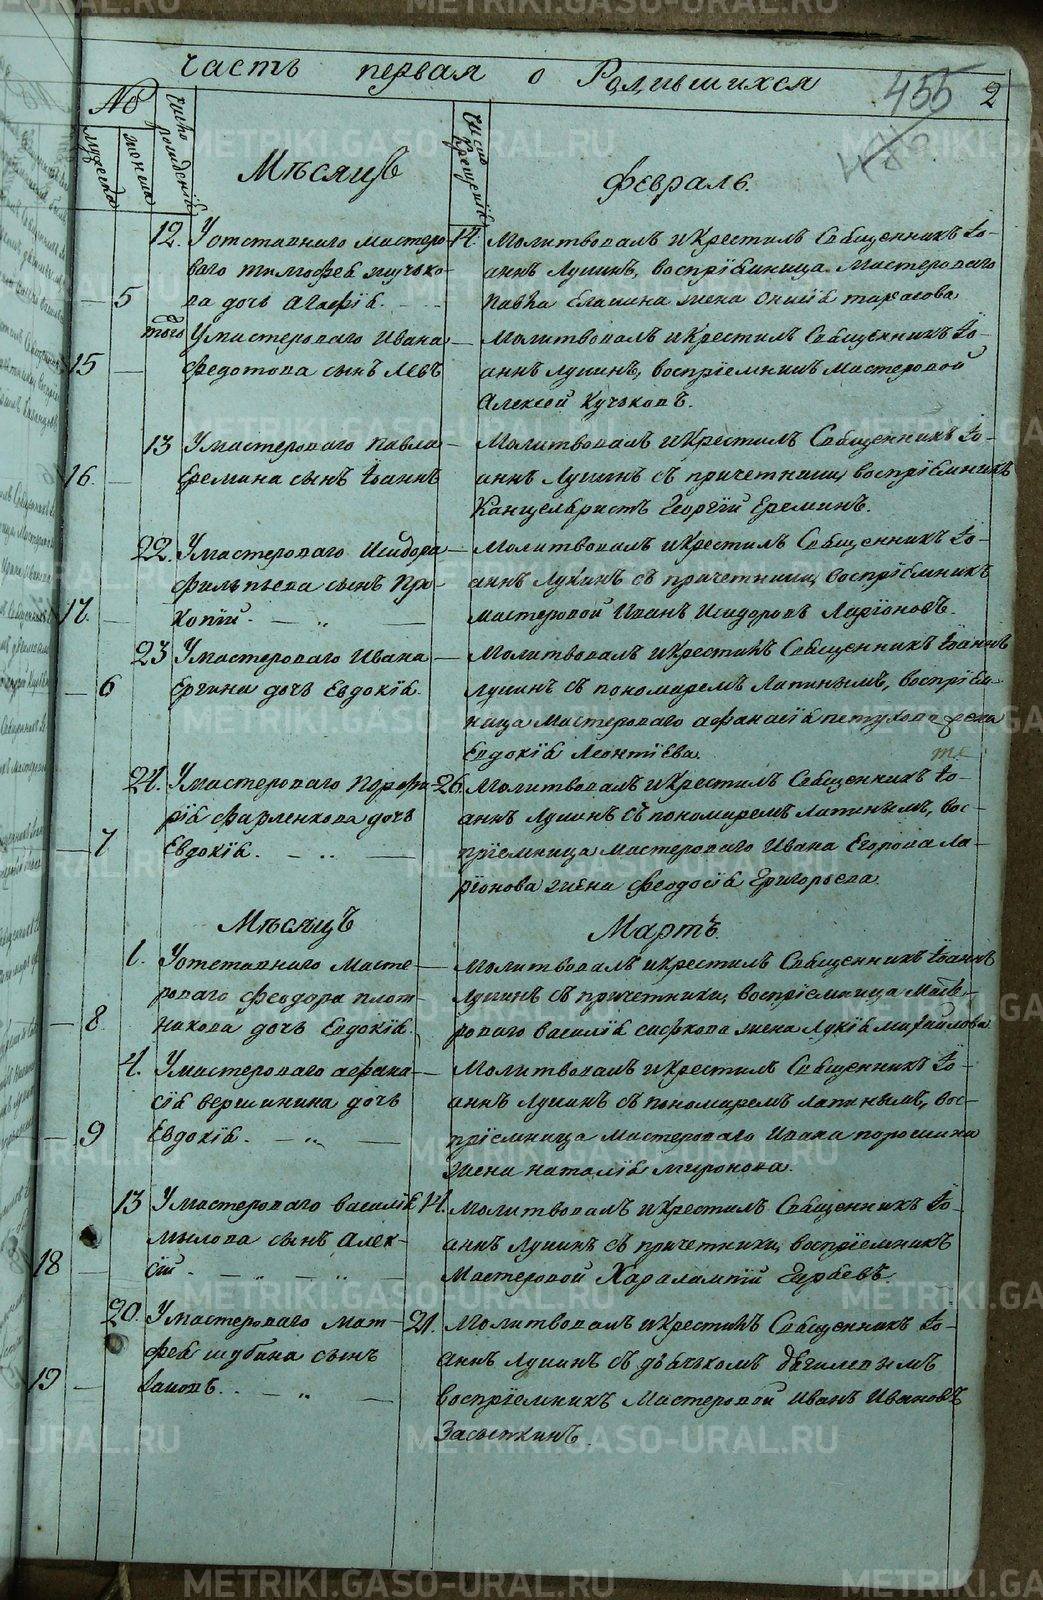 METRIKI.GASO-URAL.RU
Часть первая о Родившихся
455
2
№
мужеска
женска
Число рождения
Число крещения
Мѣсяцъ
Февраль.
5
12.
Уотставнаго мастеро-
ваго тимофея жучько-
ва дочь Агафія.
14.
Молитвовалъ и крестилъ Священникъ Іо-
аннъ Лукинъ, воспріемница Мастероваго
Павла Еламина жена Оникія тарасова
15
того
Умастероваго Ивана
Федотова сынъ Левъ
Молитвовалъ и крестилъ Священникъ Іо-
аннъ Лукинъ, воспріемникъ Мастеровой
Алексей Кучьковъ.
16.
13
Умастероваго Павла
Еремина сынъ Іоаннъ
Молитвовалъ и крестилъ Священникъ Іо-
аннъ Лукинъ съ причетники, воспріемникъ
Канцеляристъ Георгій Ереминъ.
17.
22.
Умастероваго Исидора
Фильпьева сынъ Про-
копій.
Молитвовалъ и крестилъ Священникъ Іо-
аннъ Лукинъ съ причетники, воспріемникъ
мастеровой Иванъ Исидоровъ Ларіоновъ.
6
23
Умастероваго Ивана
Ергина дочь Евдокія.
Молитвовалъ и крестилъ Священникъ Іоаннъ
Лукинъ съ пономаремъ Лапинымъ, воспріем-
ница Мастероваго Афанасія петухова жена
Евдокія Леонтіева.
7
24.
Умастероваго Порфи-
рія Фарленкова дочь
Евдокія.
26.
Молитвовалъ и крестилъ Священникъ Іо-
аннъ Лукинъ съ пономаремъ Лапинымъ, вос-
пріемница мастероваго Ивана Егорова Ла-
ріонова жена Феодосія Григорьева.
Мѣсяцъ
Мартъ.
8
1.
Уотставнаго Масте-
роваго Феодора плот-
никова дочь Евдокія.
Молитвовалъ и крестилъ Священникъ Іоаннъ
Лукинъ съ причетники, воспріемница Масте-
роваго Василія сифкова жена Лукія михайлова
9
4.
Умастероваго Афана-
сія вершинина дочь
Евдокія.
Молитвовалъ и крестилъ Священникъ Іо-
аннъ Лукинъ съ пономаремъ Лапинымъ, вос-
пріемница Мастероваго Ивана порошина
жена наталія миронова.
18
13
Умастероваго василія
мылова сынъ Алек-
сій.
14.
Молитвовалъ и крестилъ Священникъ Іо-
аннъ Лукинъ съ причетники, воспріемникъ
Мастеровой Харалампій Гурбевъ.
19
20.
Умастероваго Мат-
фея шубина сынъ
Іаковъ.
21.
Молитвовалъ и крестилъ Священникъ Іо-
аннъ Лукинъ съ дьячькомъ
воспріемникъ Мастеровой Иванъ Ивановъ
Засыпкинъ.